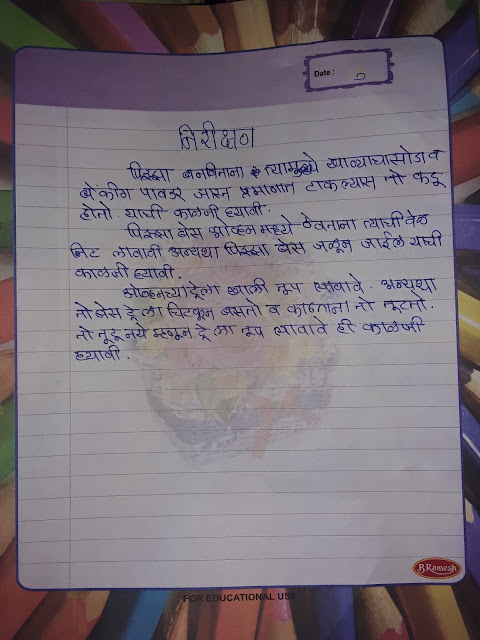 Date :
निरीक्षण
पिझ्झा बनविताना त्यामध्ये खाण्याचा सोडा व
बेकींग पावडर जास्त प्रमाणात टाकल्यास तो कडू
होतो. याची काळजी घ्यावी.
पिझ्झा बेस ओव्हन मध्ये ठेवताना त्याची वेळ
निट लावावी अन्यथा पिझ्झा बेस जळून जाईल याची
काळजी घ्यावी.
ओव्हनच्या ट्रेला खाली तूप लावावे. अन्यथा
तो बेस ट्रे ला चिटकून बसतो व काढताना तो तूटतो.
तो तूटू नये म्हणून ट्रे ला तूप लावावे ही काळजी
घ्यावी.
B.Ramesh
FOR EDUCATIONAL USE